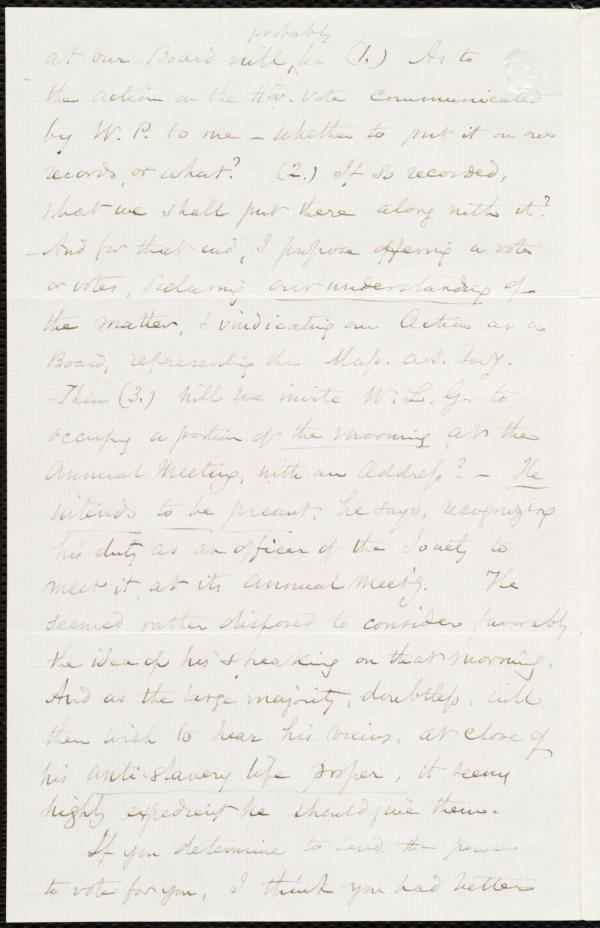 probably
at our Board will ^ be (1.) As to
the action on the Hov. vote communicated
by W. P. to me – whether to put it on our
records, or what? (2.) If so recorded,
what we shall put there along with it?
– And for that end, I propose offering a vote
or votes, declaring our understanding of
the matter, & vindicating our Action as a
Board, representing the Mass. a.s. Soc'y.
– Then (3.) will we invite W. L. G. to
occupy a portion of the morning at the
Annual Meeting, with an Address? – He
intends to be present, he says, recognizing
his duty as an officer of the Society to
meet it at its annual Meet'g. He
seemed rather disposed to consider favorably
the idea of his speaking on that morning.
And as the large majority, doubtless, will
then wish to hear his views, at close of
his anti-slavery life proper, it seems
highly expedient he should give them.
If you determine to send the power
to vote for you, I think you had better